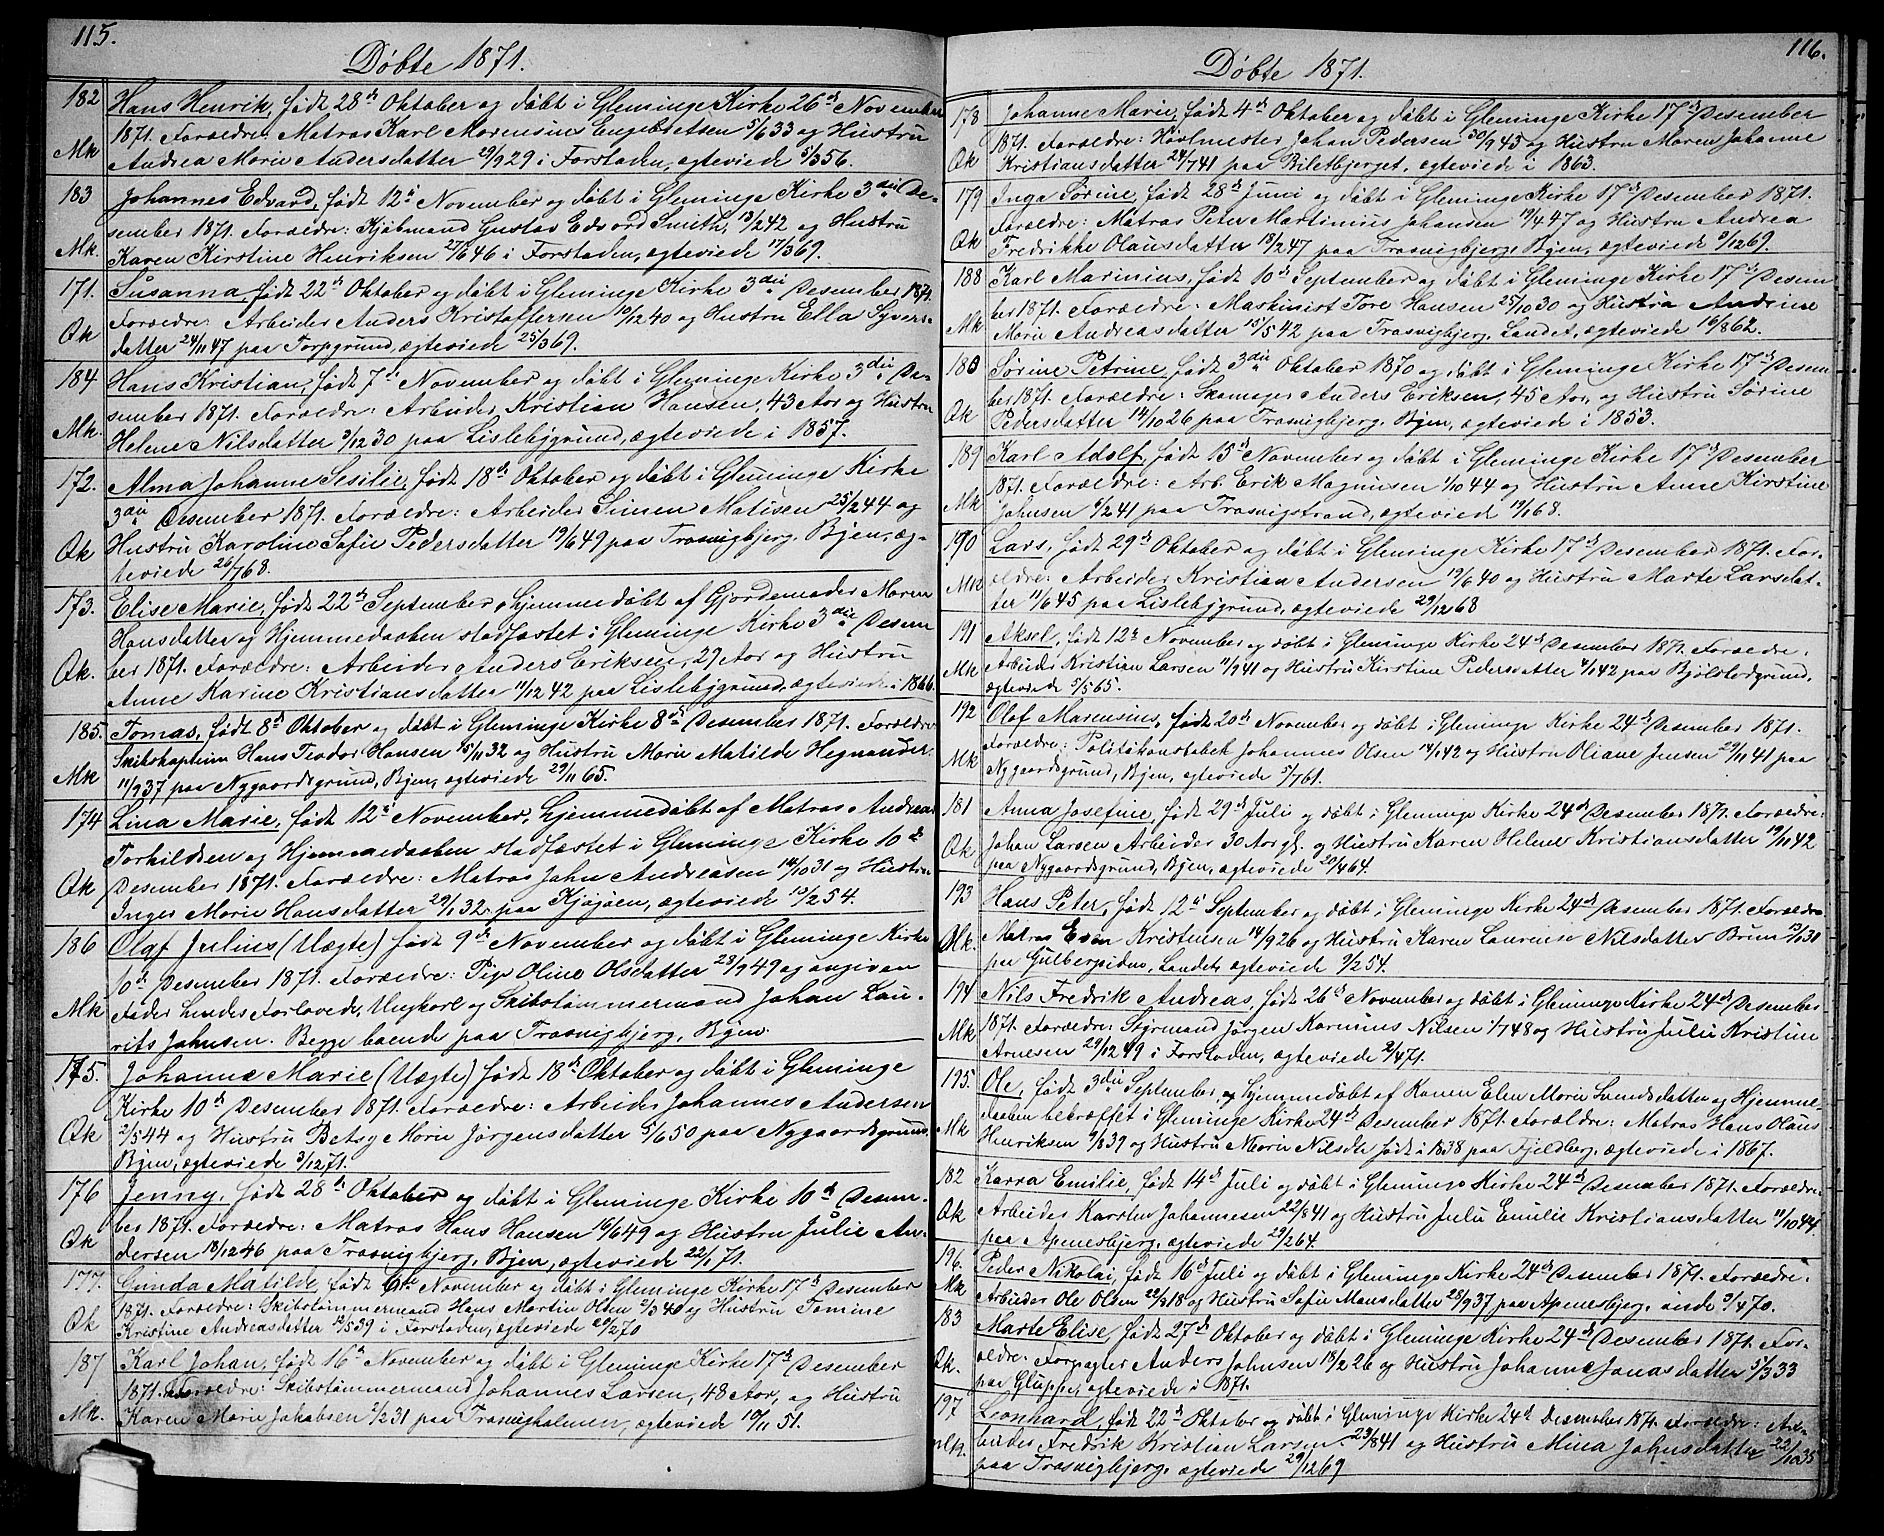 115.
Döbte 1871.
182 Hans Henrik, født 28de Oktober og døbt i Gleminge Kirke 26de November
1871. Foræeldre: Matros Karl Marensius Engebretsen 5/6 33 og Hustru
Mk Andrea Marie Andersdatter 29/9 29 i Forstaden, ægteviede 5/3 56.
183 Johannes Edvard, født 12te November og døbt i Gleminge Kirke 3die De-
sember 1871. Foræeldre: Kjøbmand Gustav Edvard Smith, 13/2 42 og Hustru
Mk. Karen Kirstine Henriksen 27/6 46 i Forstaden, ægteviede 17/3 69.
171. Susanna, født 22de Oktober og døbt i Gleminge Kirke 3die Desember 1871.
Foræeldre: Arbeider Anders Kristoffersen 10/12 40 og Hustru Ella Syvers-
Qk datter 24/11 47 paa Torpgrund, ægteviede 25/3 69.
184 Hans Kristian, født 7de November og døbt i Gleminge Kirke 3die De-
sember 1871. Foræeldre: Arbeider Kristian Hansen, 43 Aar og Hustru
Mk. Helene Nilsdatter 3/12 30 paa Lislebygrund, ægteviede i 1857.
172. Alma Johanne Sesilie, født 18de Oktober og døbt i Gleminge Kirke
3die Desember 1871. Foræeldre: Arbeider Simen Matisen 25/2 44 og
Qk Hustru Karoline Sofie Pedersdatter 19/6 49 paa Trosvigbjerg, Byen, æg-
teviede 26/7 68.
173. Elise Marie, født 22de September, hjemmedøbt af Gjordemoder Maren
Hansdatter og Hjemmedaaben stadfæstet i Gleminge Kirke 3die Desem
Qk. ber 1871. Foræeldre: Arbeider Anders Eriksen, 29 Aar og Hustru
Anne Karine Kristiansdatter 11/12 42 paa Lislebygrund, ægteviede i 1866.
185. Tomas, født 8de Oktober og døbt i Gleminge Kirke 8de Desember 1871. Foræeldre
Skibskaptein Hans Teodor Hansen 15/11 32 og Hustru Marie Matilde Hegnander
Mk 11/9 37 paa Nygaardsgrund, Byen, ægteviede 29/11 65.
174 Lina Marie, født 12te November, hjemmedøbt af Matros Andreas
Torkildsen og Hjemmedaaben stadfæstet i Gleminge Kirke 10de
Qk Desember 1871. Foræeldre: Matros John Andreasen 14/10 31 og Hustru
Inger Marie Hansdatter 29/1 32 paa Kjøjøen, ægteviede 13/2 54.
186 Olaf Julius (Uægte) født 9de November og døbt i Gleminge Kirke
10de Desember 1871. Foræeldre: Pige Oline Olsdatter 28/9 49 og angiven
Mk Fader hendes Forlovede, Ungkarl og Skibstømmermand Johan Lau-
rits Johnsen. Begge boende paa Trosvigbjerg, Byen.
175. Johanne Marie (Uægte) født 18de Oktober og døbt i Gleminge
Kirke 10de Desember 1871. Foræeldre: Arbeider Johannes Andersen
Qk 2/5 44 og Hustru Betsy Marie Jørgensdatter 5/6 50 paa Nygaardsgrund,
Byen, ægteviede 3/12 71.
176 Jenny, født 28de Oktober og døbt i Gleminge Kirke 10de Desem-
ber 1871. Foræeldre: Matros Hans Hansen 16/6 49 og Hustru Julie An-
Qk dersen 18/12 46 paa Trosvigbjerg, Byen, ægteviede 22/1 71.
177. Gunda Matilde, født 6te November og døbt i Gleminge Kirke 17de Desember
1871. Foræeldre: Skibstømmermand Hans Martin Olsen 2/3 40 og Hustru Tomine
Qk Kristine Andreasdatter 12/5 39 i Forstaden, ægteviede 20/2 70
187 Karl Johan, født 16de November og døbt i Gleminge Kirke 17de Desember
1871. Foræeldre: Skibstømmermand Johannes Larsen, 48 Aar, og Hustru
Mk. Karen Marie Jakobsen 2/2 31 paa Trosvigholmen, ægteviede 10/11 51.
116.
Døbte 1871.
178 Johanne Marie, født 4de Oktober og døbt i Gleminge Kirke 17de Desember
1871. Foræeldre: Hovlmester Johan Pedersen 30/9 43 og Hustru Maren Johanne
Qk Kristiansdatter 24/7 41 paa Biletbjerget, ægteviede i 1863.
179 Inga Sørine, født 28de Juni og døbt i Gleminge Kirke 17de Desember 1871.
Foræeldre: Matros Peter Martinius Johansen 19/4 47 og Hustru Andrea
Qk Fredrikke Olausdatter 18/2 47 paa Trosvigbjerg, Byen, ægteviede 5/12 69.
188 Karl Marinius, født 10de September og døbt i Gleminge Kirke 17de Desem
ber 1871. Foræeldre: Maskinist Tore Hansen 25/10 30 og Hustru Andrine
Mk Marie Andreasdatter 13/5 42 paa Trosvigbjerg, Landet, ægteviede 16/8 62.
180 Sørine Petrine, født 3die Oktober 1870 og døbt i Gleminge Kirke 17de Desem-
ber 1871. Foræeldre: Skomager Anders Eriksen, 45 Aar, og Hustru Sørine
Qk Pedersdatter 14/10 26 paa Trosvigbjerg, Byen, ægteviede i 1853.
189 Karl Adolf, født 13de November og døbt i Gleminge Kirke 17de Desember
1871. Foræeldre: Arb. Erik Magnusen 1/10 44 og Hustru Anne Kirstine
Mk Johnsen 6/2 41 paa Trosvigstrand, ægteviede 19/1 68.
190 Lars, født 29de Oktober og døbt i Gleminge Kirke 17de Desember 1871. For-
Mk ældre: Arbeider Kristian Andersen 19/6 40 og Hustru Marte Larsdat-
ter 11/6 45 paa Lislebygrund, ægteviede 29/12 68
191 Aksel, født 12te November og døbt i Gleminge Kirke 24de Desember 1871. Foræeldre:
Mk Arbeider Kristian Larsen 11/9 41 og Hustru Kirstine Pedersdatter 4/1 42 paa Bjølstadgrund,
ægteviede 5/5 65.
192 Olaf Marensius, født 20de November og døbt i Gleminge Kirke 24de Desember 1871.
Foræeldre: Politikonstabel Johannes Olsen 14/1 42 og Hustru Oliane Jensen 29/11 41 paa
Mk Nygaardsgrund, Byen, ægteviede 5/7 61.
181 Anna Josefine, født 29de Juli og døbt i Gleminge Kirke 24de Desember 1871. Foræeldre:
Qk Johan Larsen Arbeider 30 Aar gl. og Hustru Karen Helene Kristiansdatter 19/11 42
paa Nygaardsgrund, Byen, ægteviede 20/4 64.
193 Hans Peter, født 12te September og døbt i Gleminge Kirke 24de Desember 1871. Foræeldre
Mk. Matros Even Kristensen 14/9 26 og Hustru Karen Laurense Nilsdatter Brun 13/1 30
paa Gulbergsiden, Landet, ægteviede 9/2 54.
194 Nils Fredrik Andreas, født 26de November og døbt i Gleminge Kirke 24de Desember
Mk 1871. Foræeldre: Styrmand Jørgen Karinius Nilsen 1/7 48 og Hustru Julie Kristine
Arnesen 29/12 49 i Forstaden, ægteviede 2/4 71.
195. Ole, født 3die September, og hjemmedøbt af Konen Elen Marie Svendsdatter og Hjemme-
Mk daaben bekræftet i Gleminge Kirke 24de Desember 1871. Foræeldre: Matros Hans Olaus
Henriksen 9/8 39 og Hustru Marie Nilsdr født i 1838 paa Fjeldberg, ægteviede i 1867.
182 Karra Emilie, født 14de Juli og døbt i Gleminge Kirke 24de Desember 1871. Foræeldre:
Qk Arbeider Karsten Johannesen 22/8 41 og Hustru Julie Emilie Kristiansdatter 11/10 44.
paa Apenesbjerg, ægteviede 29/2 64.
196. Peder Nikolai, født 16de Juli og døbt i Gleminge Kirke 24de Desember 1871. Foræeldre:
Mk Arbeider Ole Olsen 22/3 18 og Hustru Sofie Mansdatter 28/9 37 paa Apenesbjerg, 3/4 70.
183 Marte Elise, født 27de Oktober og døbt i Gleminge Kirke 24de Desember 1871. For-
Qk. ældre: Forpagter Anders Johnsen 18/2 26 og Hustru Johanne Jonasdatter 5/3 33
paa Gluppe, ægteviede i 1871.
197 Leonhard, født 22de Oktober og døbt i Gleminge Kirke 24de Desember 1871. Foræeldre: Ar-
Mk. beider Fredrik Kristian Larsen 23/8 41 og Hustru Mina Johnsdatter 22/10 35
paa Trosvigbjerg, ægteviede 29/12 69